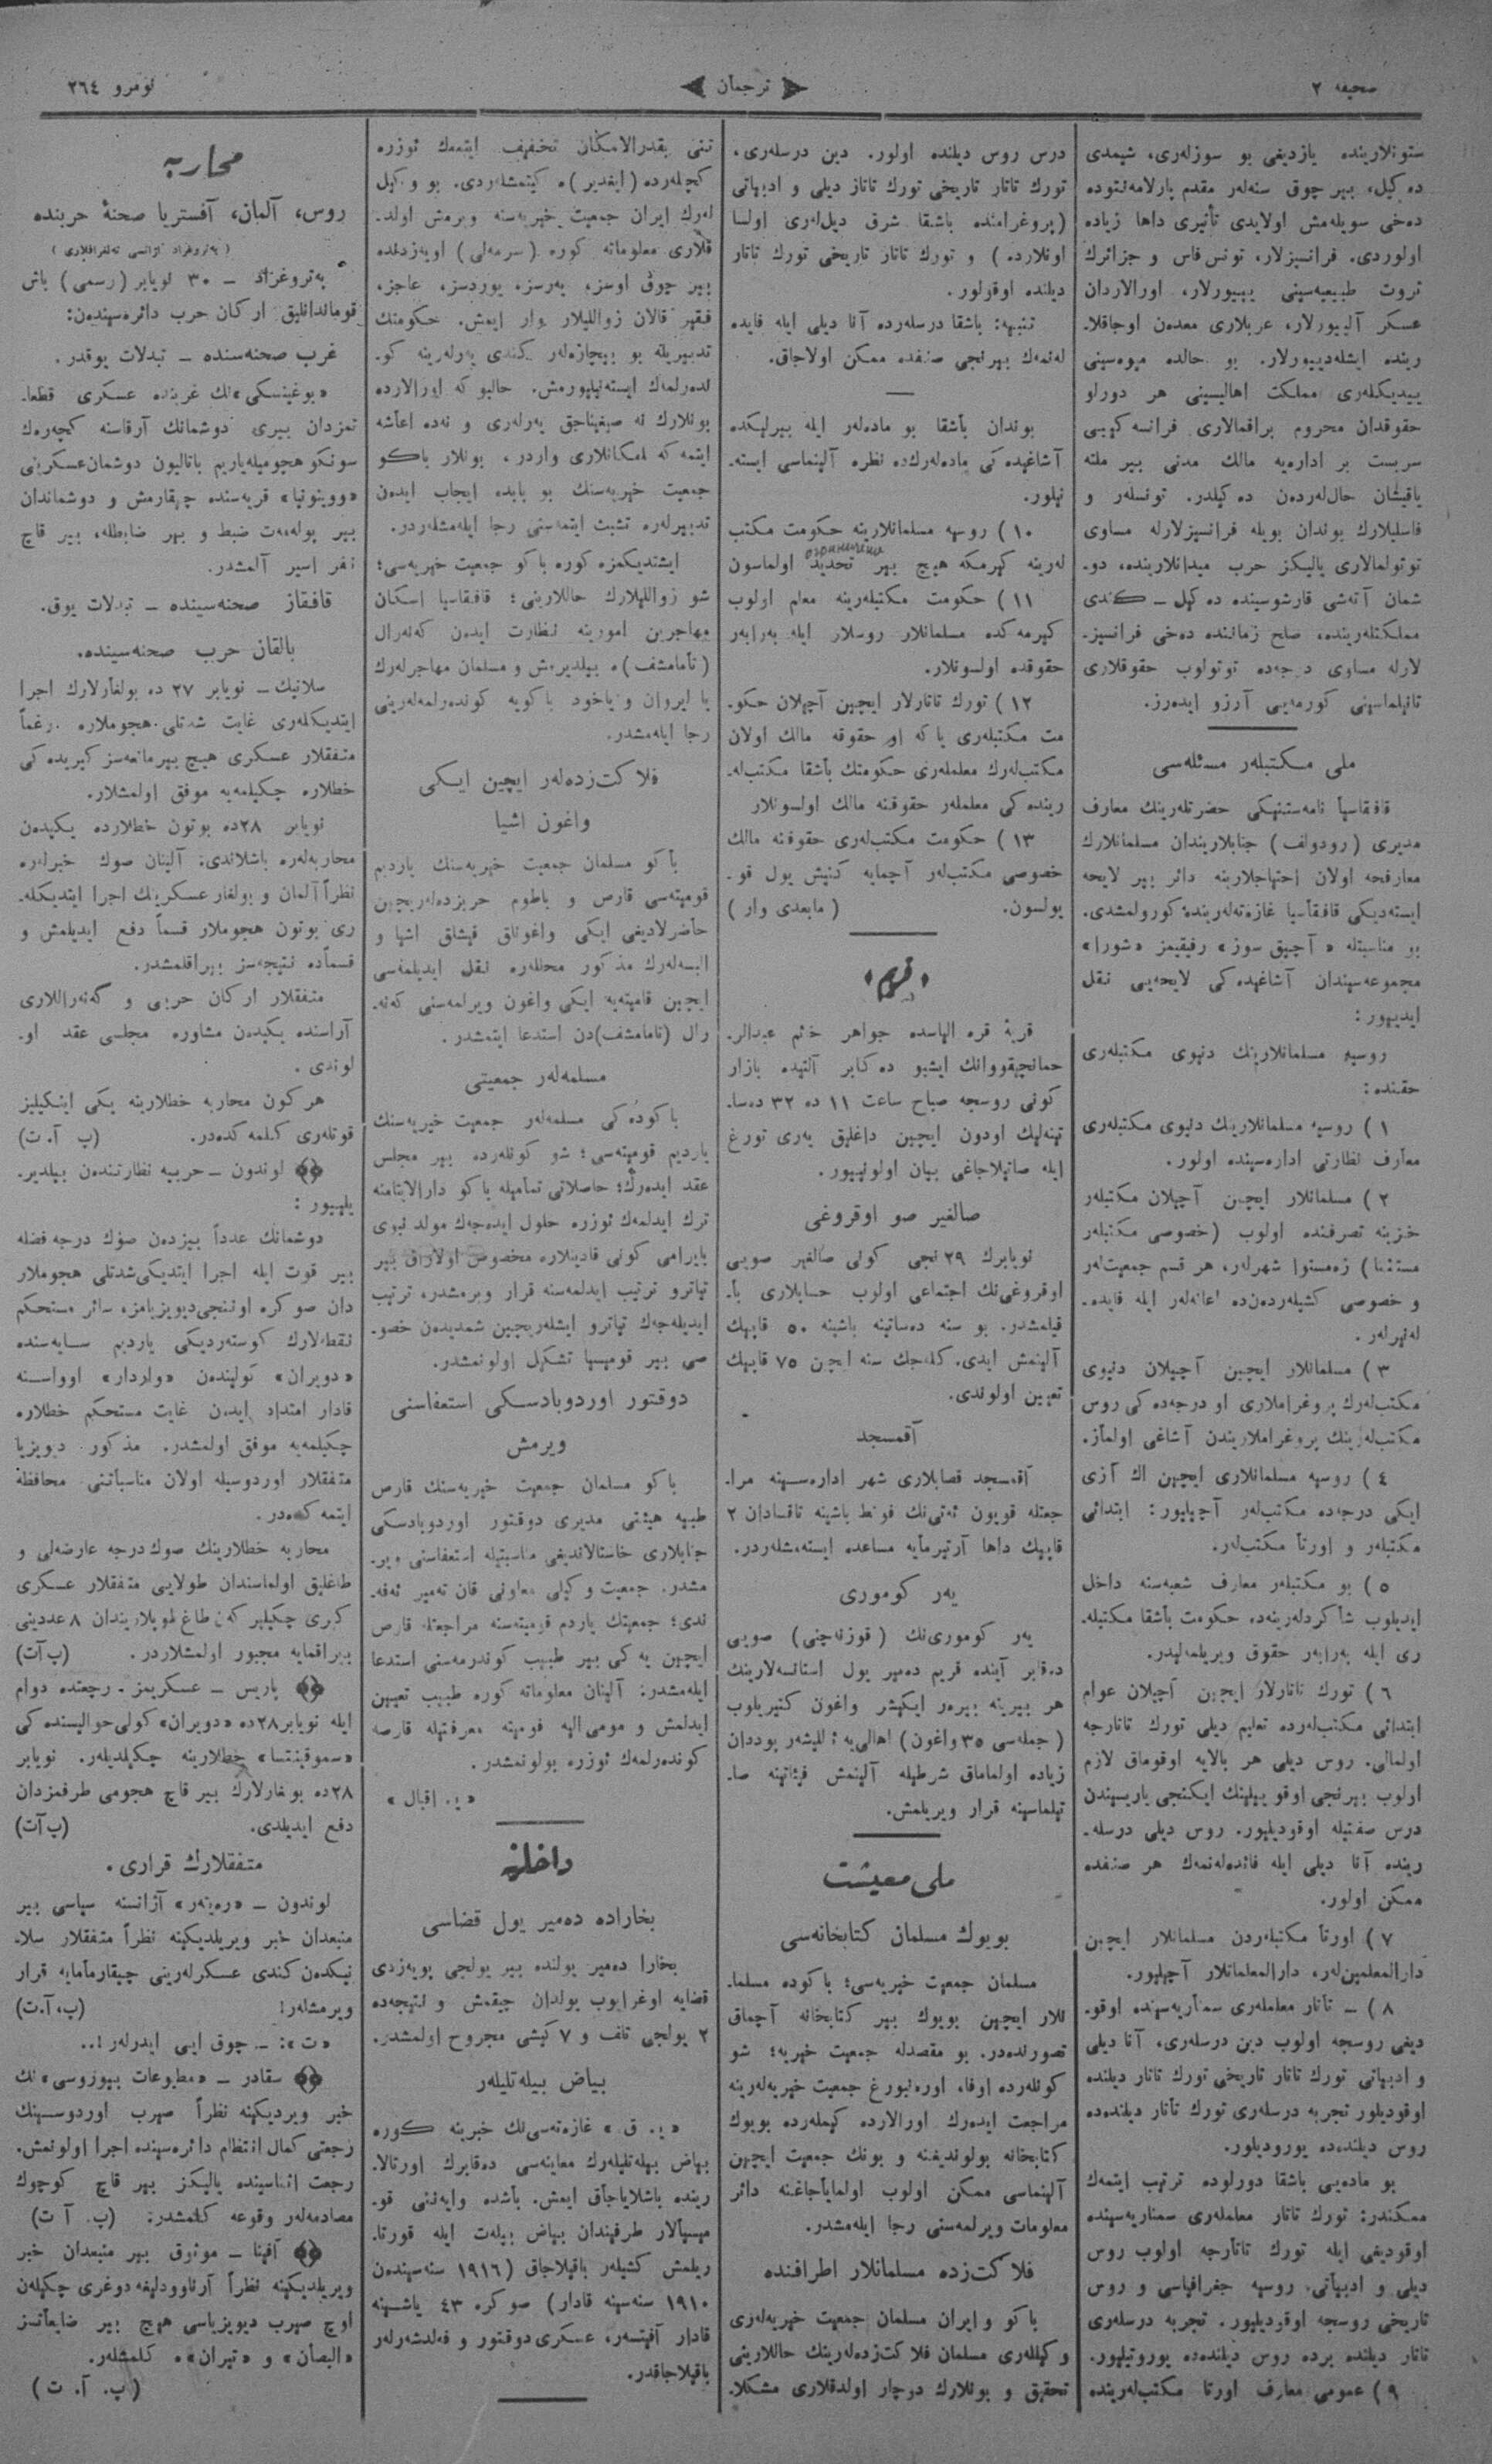 صحیفه ٢
ترجمان
نومرو ٢٦٤
ستونلارینده یازدیغی بو سوزلەری، شیمدی
دەکیل، بیر چوق سنەلەر مقدم پارلامەنتودە
دەخی سویلەمش اولایدی تأثیری داها زیادە
اولوردی. فرانسیزلار، تونس فاس و جزائرڭ
ثروت طبیعیەسینی یییورلار، اورالاردان
عسکر آلیبورلار، عربلاری معدن اوجاقلا-
رینده ایشلەدییورلار. بو حالده میوەسینی
ییدیکلەری مملکت اهالیسینی هر دورلو
حقوقدان محروم براقمالاری فرانسە کیبی
سربست بر ادارەیە مالك مدنی بیر ملتە
یاقیشان حاللەردن دەکیلدر. تونسلەر و
فاسلیلارك بوندان بویلە فرانسیزلارلە مساوی
توتولمالاری یالیکز حرب میدانلارینده، دو-
شمان آتەشی قارشوسیندە دەکیل - کندی
مملکتلەرینده، صلح زمانیندە دەخی فرانسیز-
لارلە مساوی درجەدە توتولوب حقوقلاری
تانیلماسینی کورمەیی آرزو ایدەرز.
ملی مکتبلەر مسئلەسی
قافقاسیا نامەستنیکی حضرتلەرینك معارف
مدیری (رودولف) جنابلاریندان مسلمانلارك
معارفجە اولان احتیاجلارینە دائر بیر لایحە
ایستەدیکی قافقاسیا غازەتەلەرینده کورولمشدی.
بو مناسبتلە «آچیق سوز» رفیقیمز «شورا»
مجموعەسیندان آشاغیدەکی لایحەیی نقل
ایدییور:
روسیە مسلمانلارینك دنیوی مکتبلەری
حقندە:
١) روسیە مسلمانلارینك دنیوی مکتبلەری
معارف نظارتی ادارەسیندە اولور.
٢) مسلمانلار ایچین آچیلان مکتبلەر
خزینە تصرفندە اولوب (خصوصی مکتبلەر
مستثنا) زەمستوا شهرلەر، هر قسم جمعیت‌لەر
و خصوصی کشیلەردەن‌دە اعانەلەر ایلە فایدە-
لەنیرلەر.
٣) مسلمانلار ایچین آچیلان دنیوی
مکتب‌لەرك پروغراملاری او درجەدەکی روس
مکتب‌لەرینك پروغراملاریندن آشاغی اولماز.
٤) روسیە مسلمانلاری ایچین اك آزی
ایکی درجەدە مکتب‌لەر آچیلیور: ابتدائی
مکتبلەر و اورتا مکتب‌لەر.
٥) بو مکتبلەر معارف شعبەسنە داخل
ایدیلوب شأکردلەرینەدە حکومت بأشقا مکتبلە-
ری ایلە بەرابەر حقوق ویریلمەلیدر.
٦) تورك تاتارلار ایچین آچیلان عوام
ابتدائی مکتب‌لەردە تعلیم دیلی تورك تاتارجە
اولمالی. روس دیلی هر بالایە اوقوماق لازم
اولوب بیرنجی اوقو ییلینك ایکنجی یاریسیندن
درس صفتیلە اوقودیلیور. روس دیلی درسلە-
ریندە آنا دیلی ایلە فائدەلەنمەك هر صنفدە
ممکن اولور.
٧) اورتا مکتبلەردن مسلمانلار ایچین
دارالمعلمین‌لەر، دارالمعلماتلار آچیلیور.
٨) - تأتار معلملەری سمناریەسیندە اوقو-
دیغی روسجە اولوب دین درسلەری، آنا دیلی
و ادبیاتی تورك تاتار تاریخی تورك تاتار دیلندە
اوقودیلور تجربە درسلەری تورك تأتار دیلندەدە
روس دیلندەدە یورودیلور.
بو مادەیی باشقا دورلودە ترتیب ایتمەك
ممکندر: تورك تاتار معلملەری سمناریەسیندە
اوقودیغی ایلە تورك تاتارجە اولوب روس
دیلی و ادبیاتی، روسیە جغرافیاسی و روس
تاریخی روسجە اوقودیلیور. تجربە درسلەری
تاتار دیلندە بردە روس دیلندەدە یوروتیلیور.
٩) عمومی معارف اورتا مکتب‌لەریندە
درس روس دیلندە اولور. دین درسلەری،
تورك تاتار تاریخی تورك تاتار دیلی و ادبیاتی
(پروغرامندە باشقا شرق دیل‌لەری اولسا
اونلاردە) و تورك تاتار تاریخی تورك تاتار
دیلندە اوقولور.
تنبیە: باشقا درسلەردە آنا دیلی ایلە فایدە
لەنمەك بیرنجی صنفدە ممکن اولاجاق.
بوندان بأشقا بو مادەلەر ایلە بیرلیکدە
آشاغیدەکی مادەلەرك‌دە نظرە آلینماسی ایستە-
نیلور.
١٠) روسیە مسلمانلارینە حکومت مکتب
لەرینە کیرمکە هیچ بیر تحدید اولماسون
ограничение
١١) حکومت مکتبلەرینە معلم اولوب
کیرمەکدە مسلمانلار روسلار ایلە بەرابەر
حقوقدە اولسونلار.
١٢) تورك تاتارلار ایچین آچیلان حکو-
مت مکتبلەری یاکە او حقوقە مالك اولان
مکتب‌لەرك معلملەری حکومتك بأشقا مکتب‌لە-
ریندەکی معلملەر حقوقنە مالك اولسونلار
١٣) حکومت مکتب‌لەری حقوقنە مالك
خصوصی مکتب‌لەر آچمایە کنیش یول قو-
یولسون. (مابعدی وار)
قریم
قریۀ قرە الیاسدە جواهر خانم عبدالر-
حمانچیقووانك ایشبو دەکابر آلتیدە بازار
کونی روسجە صباح ساعت ١١ دە ٣٢ دەسا-
تینەلیك اودون ایچین داغلیق یەری تورغ
ایلە صاتیلاجاغی بیان اولونیور.
صالغیر صو اوقروغی
نویابرك ٢٩نجی کونی صالغیر صویی
اوقروغی‌نك اجتماعی اولوب حسابلاری با-
قیلمشدر. بو سنە دەساتینە باشینە ٥٠ قاپیك
آلینمش ایدی. کلەجك سنە ایچن ٧٥ قاپیك
تعیین اولوندی.
آقمسجد
آقمسجد قصابلاری شهر ادارەسینە مرا-
جعتلە قویون ئەتی‌نك فونط باشینە تاقسادان ٢
قاپیك داها آرتیرمایە مساعدە ایستەمشلەردر.
یەر کوموری
یەر کوموری‌نك (قوزنەچنی) صویی
دەقابر آیندە قریم دەمیر یول استانسەلارینك
هر بیرینە بیرەر ایکیشر واغون کتیریلوب
(جملەسی ٣٥ واغون) اهالی‌یە اللیشەر پوددان
زیادە اولماماق شرطیلە آلینمش فیئاتینە صا-
تیلماسینە قرار ویریلمش.
ملی معیشت
بویوك مسلمان کتابخانەسی
مسلمان جمعیت خیریەسی؛ باکودە مسلما-
نلار ایچین بویوك بیر کتابخانە آچماق
تصورندەدر. بو مقصدلە جمعیت خیریە؛ شو
کونلەردە اوفا، اورنبورغ جمعیت خیریەلەرینە
مراجعت ایدەرك اورالاردە کیملەردە بویوك
کتابخانە بولوندیغنە و بونك جمعیت ایچین
آلینماسی ممکن اولوب اولمایأجاغنە دائر
معلومات ویرلمەسنی رجا ایلەمشدر.
فلاکت‌زدە مسلمانلار اطرافندە
باکو و ایران مسلمان جمعیت خیریەلەری
وکیللەری مسلمان فلاکت‌زدەلەرینك حاللارینی
تحقیق و بونلارك دوچار اولدقلاری مشکلا-
تنی بقدرالامکان تخفیف ایتمەك ئوزرە
کچلەردە (ایغدیر)ە کیتمشلەردی. بو وکیل
لەرك ایران جمعیت خیریەسنە ویرمش اولد-
قلاری معلوماتە کورە (سرمەلی) اویەزدندە
بیر چوق اوسز، یەرسز، یوردسز، عاجز،
فقیر قالان زواللیلار وار ایمش. حکومتك
تدبیریلە بو بیچارەلەر کندی یەرلەرینە کو-
ندەرلمەك ایستەنیلیورمش. حالبوکە اورالاردە
بونلارك نە صیغیناجق یەرلەری و نەدە اعاشە
ایتمەکە امکانلاری واردر، بونلار باکو
جمعیت خیریەسنك بو بابدە ایجاب ایدەن
تدبیرلەرە تشبث ایتمەسنی رجا ایلەمشلەردر.
ایشتدیکمزە کورە باکو جمعیت خیریەسی؛
شو زواللیلارك حاللارینی؛ قافقاسیا اسکان
مهاجرین امورینە نظارت ایدەن کەنەرال
(تامامشف)ە بیلدیرمش و مسلمان مهاجرلەرك
یا ایروان و یاخود باکویە کوندەرلمەلەرینی
رجا ایلەمشدر.
فلاکت‌زدەلەر ایچین ایکی
واغون اشیا
باکو مسلمان جمعیت خیریەسنك یاردیم
قومیتەسی قارص و باطوم حربزدەلەریچین
حاضرلادیغی ایکی واغونلق قیشلق اشیا و
البسەلەرك مذکور محللەرە نقل ایدیلمەسی
ایچین قامیتەیە ایکی واغون ویرلمەسنی کەنە-
رال (تامامشف)دن استدعا ایتمشدر.
مسلمەلەر جمعیتی
باکودەکی مسلمەلەر جمعیت خیریەسنك
یاردیم قومیتەسی؛ شو کونلەردە بیر مجلس
عقد ایدەرك؛ حاصلاتی تمامیلە باکو دارالایتامنە
ترك ایدلمەك ئوزرە حلول ایدەجەك مولد نبوی
بایرامی کونی قادینلارە مخصوص اولاراق بیر
تیاترو ترتیب ایدلمەسنە قرار ویرمشدر، ترتیب
ایدیلەجەك تیاترو ایشلەریچین شمدیدەن خصو-
صی بیر قومیسیا تشکیل اولونمشدر.
دوقتور اوردوبادسکی استعفاسنی
ویرمش
باکو مسلمان جمعیت خیریەسنك قارص
طبیە هیئتی مدیری دوقتور اوردوبادسکی
جنابلاری خاستالاندیغی مناسبتیلە استعفاسنی ویر-
مشدر. جمعیت وکیلی معاونی قان تەمیر ئەفە-
ندی؛ جمعیتك یاردم قومیتەسنە مراجعتلە قارص
ایچین یەکی بیر طبیب کوندرمەسنی استدعا
ایلەمشدر: آلینان معلوماتە کورە طبیب تعیین
ایدلمش و مومی‌الیە قومیتە معرفتیلە قارصە
کوندەرلمەك ئوزرە بولونمشدر.
«ی. اقبال»
داخلیە
بخارادە دەمیر یول قضاسی
بخارا دەمیر یولندە بیر یولجی پویەزدی
قضایە اوغرایوب یولدان چیقمش و نتیجەدە
٢ یولجی تلف و ٧ کیشی مجروح اولمشدر.
بیاض بیلەتلیلەر
«ی. ق» غازەتەسی‌نك خبرینە کورە
بیاض بیلەتلیلەرك معاینەسی دەقابرك اورتالا-
ریندە باشلایاجأق ایمش. بأشدە وایەننی قو-
میسیالار طرفیندان بیاض بیلەت ایلە قورتا-
ریلمش کشیلەر باقیلاجاق (١٩١٦ سنەسیندەن
١٩١٠ سنەسینە قادار) صوکرە ٤٣ یاشینە
قادار آفیتسەر، عسکری دوقتور و فەلدشەرلەر
باقیلاجاقدر.
محاربە
روس، آلمان، آفستریا صحنۀ حربندە
(پەتروغراد آژانسی تەلغرافلاری)
پەتروغراد - ٣٠ نویابر (رسمی) باش
قوماندانلیق ارکان حرب دائرەسیندەن:
غرب صحنەسندە - تبدلات یوقدر.
«بوغینسکی»نك غربندە عسکری قطعا-
تمزدان بیری دوشمانك آرقاسنە کچەرەك
سونکو هجومیلە یاریم باتالیون دوشمان عسکرینی
قریەسندە چیقارمش و دوشماندان
بیر پولەمەت ضبط و بیر ضابطلە، بیر قاچ
نفر اسیر آلمشدر.
قافقاز صحنەسیندە - تبدلات یوق.
بالقان حرب صحنەسیندە.
سلانیك - نویابر ٢٧ دە بولغارلارك اجرا
ایتدیکلەری غایت شدتلی هجوملارە رغماً
متفقلار عسکری هیچ بیر مانعەسز کیریدەکی
خطلارە چکیلمەیە موفق اولمشلار.
نویابر ٢٨دە بوتون خطلاردە یکیدەن
محاربەلەرە باشلاندی؛ آلینان صوك خبرلەرە
نظراً آلمان و بولغار عسکرینك اجرا ایتدیکلە-
ری بوتون هجوملار قسماً دفع ایدیلمش و
قسمادە نتیجەسز بیراقلمشدر.
متفقلار ارکان حربی و گەنەراللاری
آراسندە یکیدەن مشاورە مجلسی عقد او-
لوندی.
هر کون محاربە خطلارینە یکی اینکیلیز
قوتلەری کلمەکدەدر. (پ آ. ت)
لوندون - حربیە نظارتندەن بیلدیر-
یلییور:
دوشمانك عدداً بیزدەن صوك درجە فضلە
بیر قوت ایلە اجرا ایتدیکی شدتلی هجوملار
دان صوکرە اوننجی دیویزیامز، سائر مستحکم
نقطەلارك کوستەردیکی یاردیم سایەسندە
«دویران» کولیندەن «واردار» اوواسنە
قادار امتداد ایدەن غایت مستحکم خطلارە
چکیلمەیە موفق اولمشدر. مذکور دیویزیا
متفقلار اوردوسیلە اولان مناسباتنی محافظە
ایتمەکدەدر.
محاربە خطلارینك صوك درجە عارضەلی و
طاغلیق اولماسندان طولایی متفقلار عسکری
کری چکیلیرکەن طاغ طوپلاریندان ٨ عددینی
بیراقمایە مجبور اولمشلاردر. (پ آ ت)
پاریس - عسکریمز رجعتدە دوام
ایلە نویابر ٢٨دە «دویران» کولی حوالیسندەکی
«سموقینتسا» خطلارینە چکیلدیلەر. نویابر
٢٨دە بولغارلارك بیر قاچ هجومی طرفمزدان
دفع ایدیلدی. (پ آ ت)
متفقلارك قراری.
لوندون - «رەیتەر» آژانسنە سیاسی بیر
منبعدان خبر ویریلدیکینە نظراً متفقلار سلا-
نیکدەن کندی عسکرلەرینی چیقارمأمایە قرار
ویرمشلەر! (پ. آ. ت)
«ت»: - چوق ایی ایدرلەر!..
سقادر - «مطبوعات بیوروسی»نك
خبر ویردیکینە نظراً صیرب اوردوسینك
رجعتی کمال انتظام دائرەسیندە اجرا اولونمش.
رجعت اثناسیندە یالیکز بیر قاچ کوچوك
مصادمەلەر وقوعە کلمشدر. (پ. آ ت)
آفینا - موثوق بیر منبعدان خبر
ویریلدیکینە نظراً آرناوودلیغە دوغری چکیلەن
اوچ صیرب دیویزیاسی هیچ بیر ضایعاتسز
«البصان» و «تیران»ە کلمشلەر.
(پ. آ. ت)